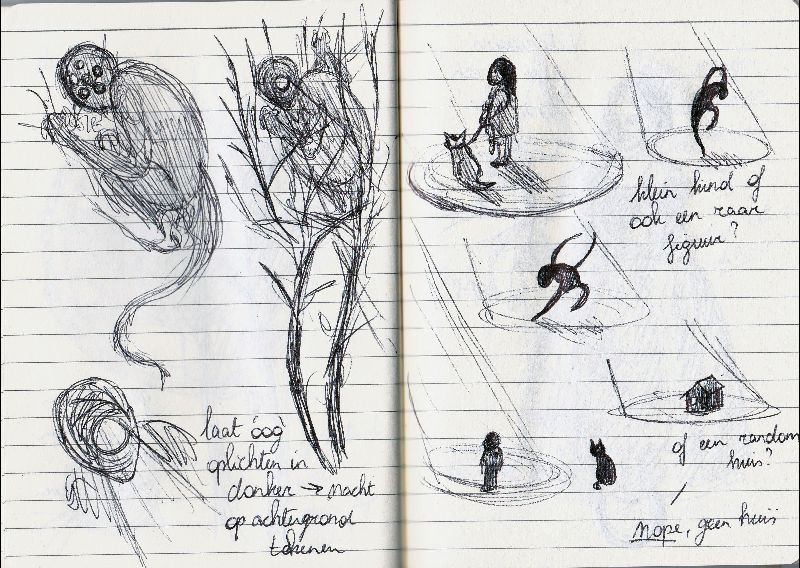 laat oog
oplichten in
donker → nacht
op achtergrond
tekenen
klein kind of
ook een raar
figuur?
of een random
huis?
nope, geen huis